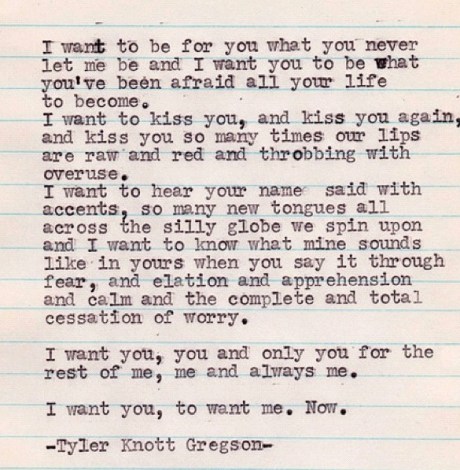 I want to be for you what you never
let me be and I want you to be what
you've been afraid all your life
to become.
I want to kiss you, and kiss you again,
and kiss you so many times our lips
are raw and red and throbbing with
overuse.
I want to hear your name said with
accents, so many new tongues all
across the silly globe we spin upon
and I want to know what mine sounds
like in yours when you say it through
fear, and elation and apprehension
and calm and the complete and total
cessation of worry.
I want you, you and only you for the
rest of me, me and always me.
I want you, to want me. Now.
-Tyler Knott Gregson-